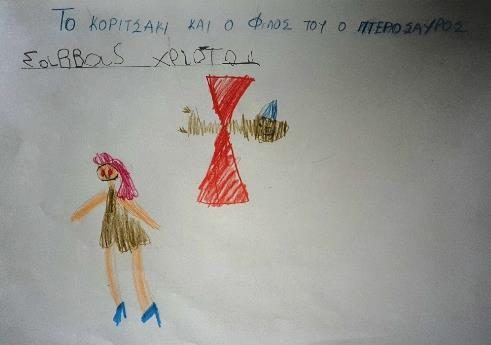 Το ΚΟΡΙΤΣΑΚΙ ΚΑΙ Ο ΦΙΛΟΣ ΤΟΥ Ο ΠΤΕΡΟΣΑΥΡΟΣ
Σαββας χριστου